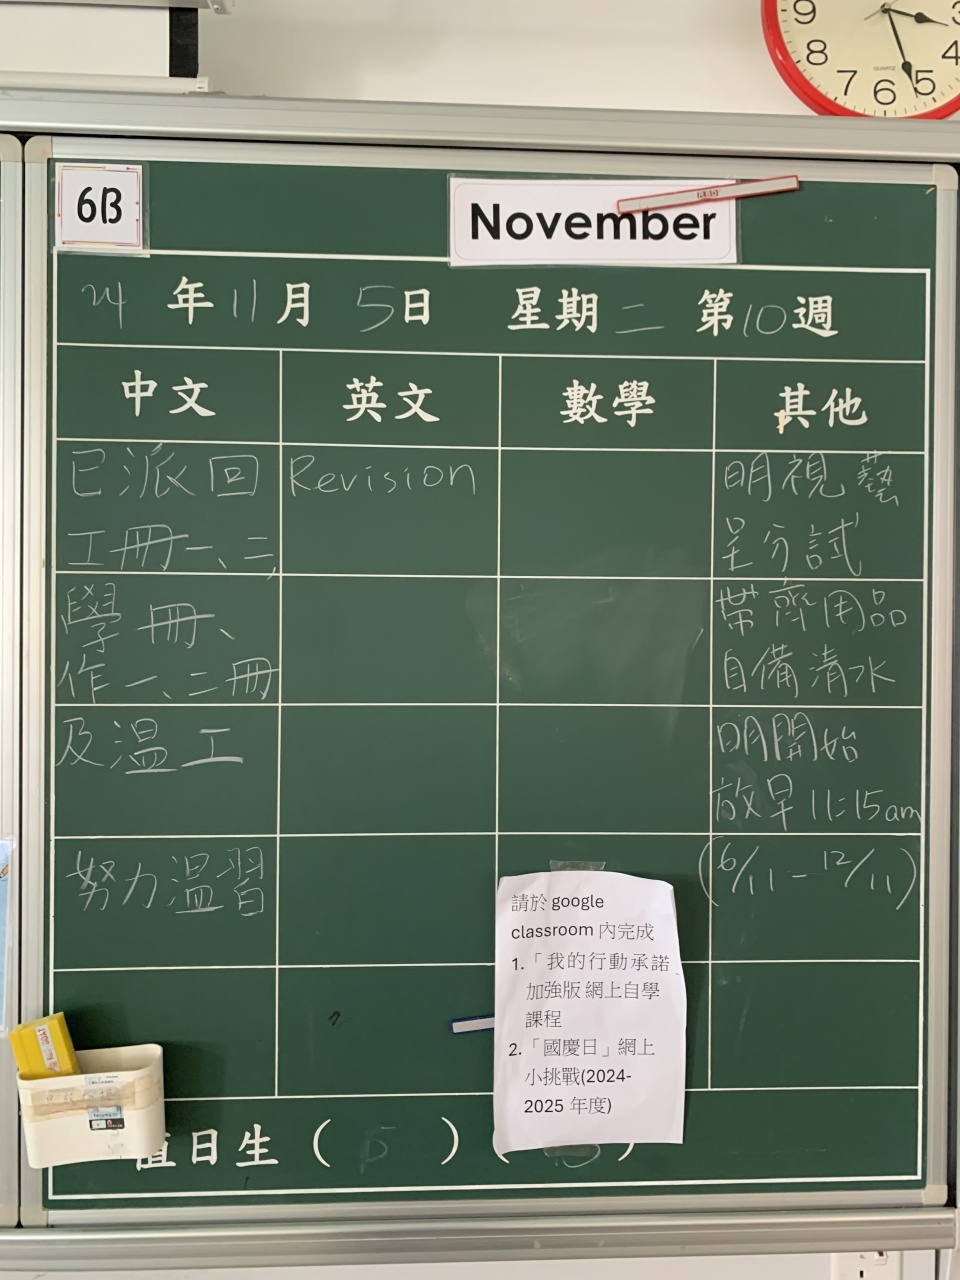 9
3
8
4
7
6
5
QUARTZ
6B
November
24 年 11 月 5 日 星期 二 第 10 週
中文 英文 數學 其他
已派回
工冊一、二,
學冊、
作一、二冊
及溫工
努力溫習
Revision
明視藝
呈分試
帶齊用品
自備清水
明開始
放早 11:15am
(6/11 - 12/11)
請於 google
classroom 內完成
1.「我的行動承諾
加強版 網上自學
課程
2.「國慶日」網上
小挑戰(2024-
2025 年度)
值日生 ( 5 ) ( )